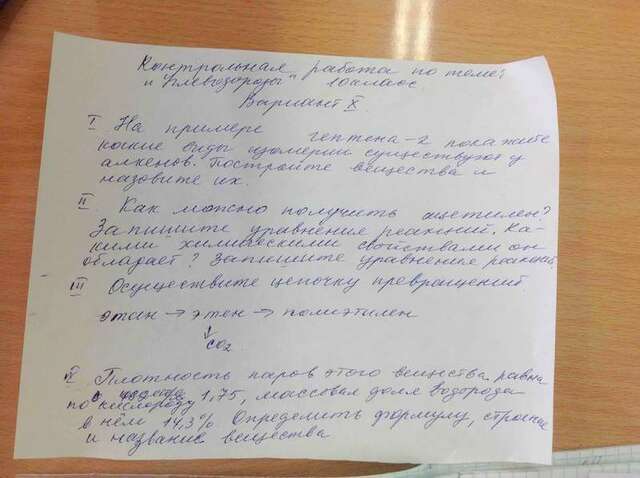 Контрольная работа по теме:
"Углеводороды" 10 класс
Вариант X
I На примере гептена-2 покажите
какие виды изомерии существуют у
алкенов. Постройте вещества и
назовите их.
II Как можно получить ацетилен?
Запишите уравнения реакций. Ка-
кими химическими свойствами он
обладает? Запишите уравнения реакций.
III Осуществите цепочку превращений.
этан → этен → полиэтилен
↓
CO2
Плотность паров этого вещества равна
по кислороду 1,75, массовая доля водорода
в нём 14,3% Определить формулу, строение
и название вещества